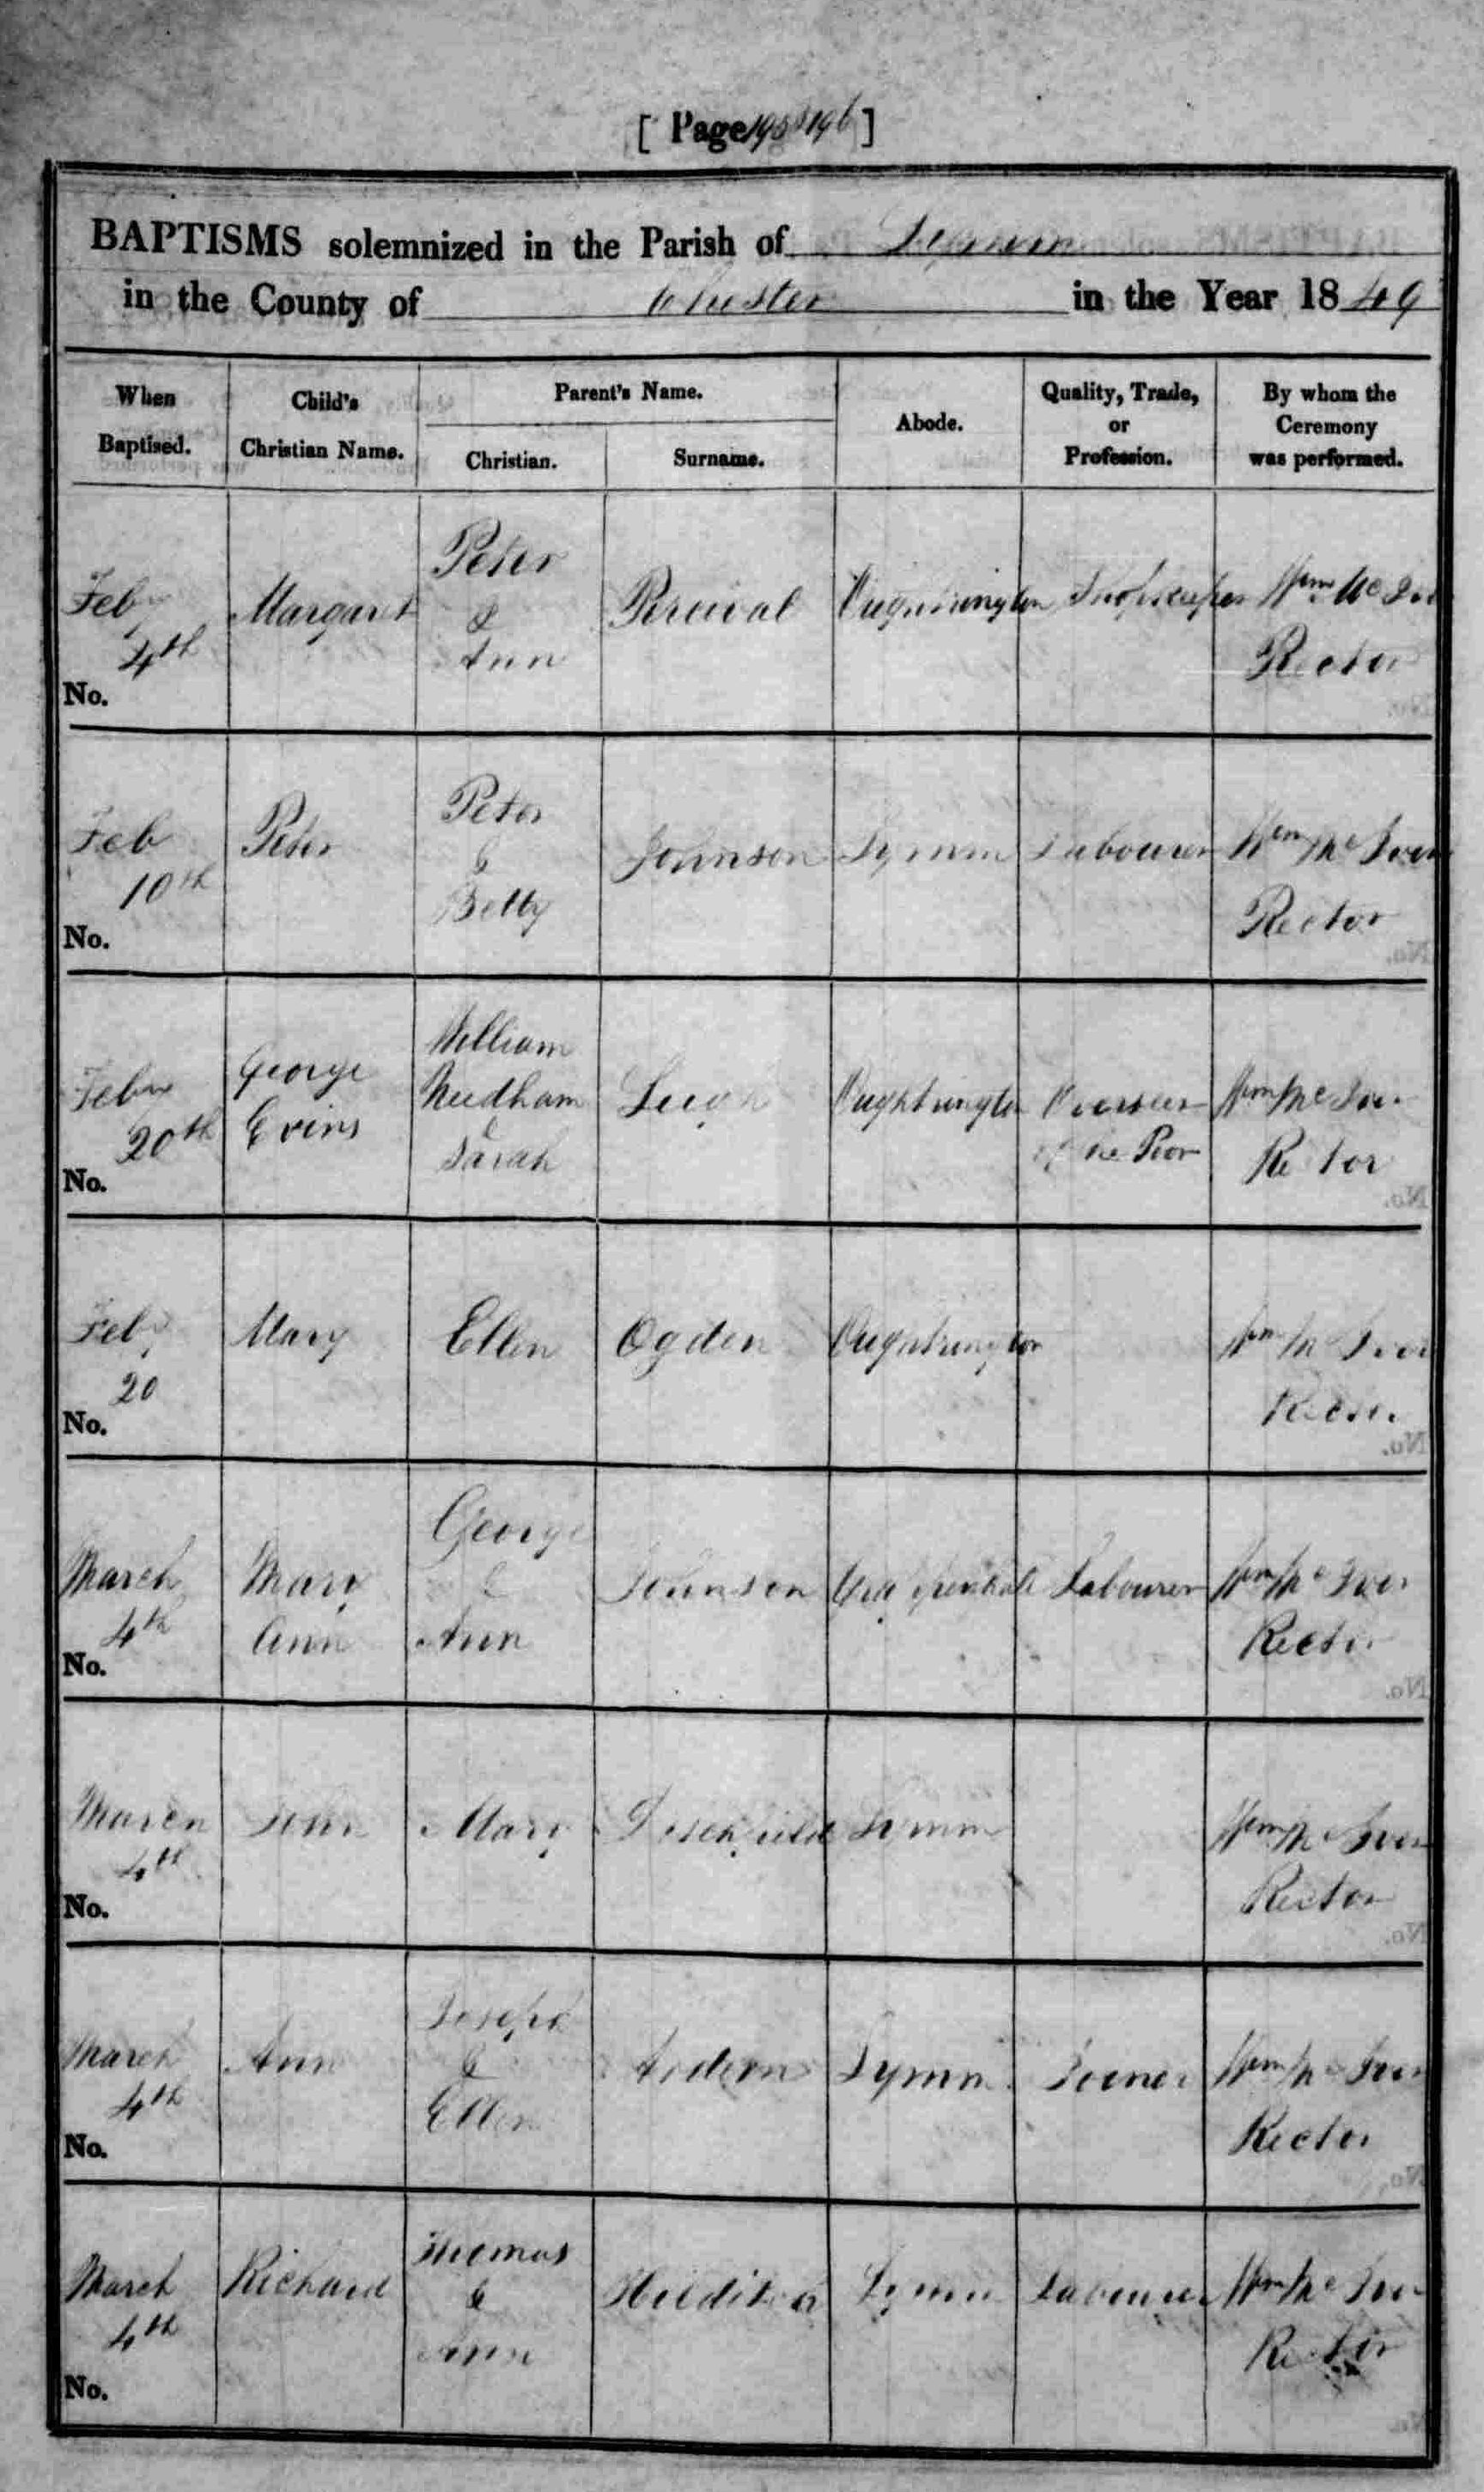 [ Page 195 & 196 ]
BAPTISMS solemnized in the Parish of Lymm
in the County of Chester in the Year 1849
When Baptised. Child's Christian Name. Parent's Name. Christian. Surname. Abode. Quality, Trade, or Profession. By whom the Ceremony was performed.
Peter
Feby Margaret & Percival Oughtrington Shopkeeper Wm Mc Iver
4th Ann Rector
No.
Peter
Feb Peter & Johnson Lymm Labourer Wm Mc Iver
10th Betty Rector
No.
William
Feby George Needham Leigh Oughtrington Overseer Wm Mc Iver
20th Evins & Sarah of the Poor Rector
No.
Feby Mary Ellen Ogden Oughtrington Wm Mc Iver
20 Rector
No.
George
March Mary & Johnson Labourer Wm Mc Iver
4th Ann Ann Rector
No.
March John Mary Lymm Wm Mc Iver
4th Rector
No.
Joseph
March Ann & Ardern Lymm Wm Mc Iver
4th Ellen Rector
No.
Thomas
March Richard & Hilditch Lymm Labourer Wm Mc Iver
4th Ann Rector
No.